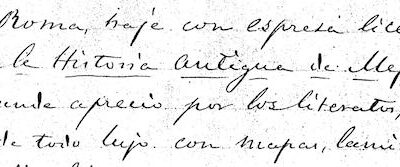 Roma, traje con espresa lice
la Historia antigua de Mej
ande aprecio por los literatos,
de todo lujo con mapas, lami